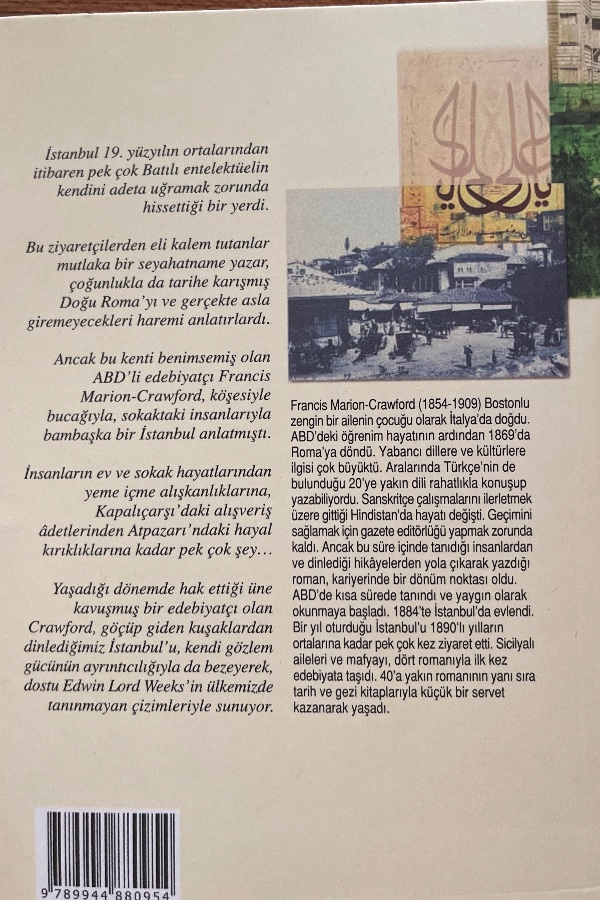 İstanbul 19. yüzyılın ortalarından
itibaren pek çok Batılı entelektüelin
kendini adeta uğramak zorunda
hissettiği bir yerdi.
Bu ziyaretçilerden eli kalem tutanlar
mutlaka bir seyahatname yazar,
çoğunlukla da tarihe karışmış
Doğu Roma'yı ve gerçekte asla
giremeyecekleri haremi anlatırlardı.
Ancak bu kenti benimsemiş olan
ABD'li edebiyatçı Francis
Marion-Crawford, köşesiyle
bucağıyla, sokaktaki insanlarıyla
bambaşka bir İstanbul anlatmıştı.
İnsanların ev ve sokak hayatlarından
yeme içme alışkanlıklarına,
Kapalıçarşı'daki alışveriş
âdetlerinden Atpazarı'ndaki hayal
kırıklıklarına kadar pek çok şey…
Yaşadığı dönemde hak ettiği üne
kavuşmuş bir edebiyatçı olan
Crawford, göçüp giden kuşaklardan
dinlediğimiz İstanbul'u, kendi gözlem
gücünün ayrıntıcılığıyla da bezeyerek,
dostu Edwin Lord Weeks'in ülkemizde
tanınmayan çizimleriyle sunuyor.
Francis Marion-Crawford (1854-1909) Bostonlu
zengin bir ailenin çocuğu olarak İtalya'da doğdu.
ABD'deki öğrenim hayatının ardından 1869'da
Roma'ya döndü. Yabancı dillere ve kültürlere
ilgisi çok büyüktü. Aralarında Türkçe'nin de
bulunduğu 20'ye yakın dili rahatlıkla konuşup
yazabiliyordu. Sanskritçe çalışmalarını ilerletmek
üzere gittiği Hindistan'da hayatı değişti. Geçimini
sağlamak için gazete editörlüğü yapmak zorunda
kaldı. Ancak bu süre içinde tanıdığı insanlardan
ve dinlediği hikâyelerden yola çıkarak yazdığı
roman, kariyerinde bir dönüm noktası oldu.
ABD'de kısa sürede tanındı ve yaygın olarak
okunmaya başladı. 1884'te İstanbul'da evlendi.
Bir yıl oturduğu İstanbul'u 1890'lı yılların
ortalarına kadar pek çok kez ziyaret etti. Sicilyalı
aileleri ve mafyayı, dört romanıyla ilk kez
edebiyata taşıdı. 40'a yakın romanının yanı sıra
tarih ve gezi kitaplarıyla küçük bir servet
kazanarak yaşadı.
9 789944 880954